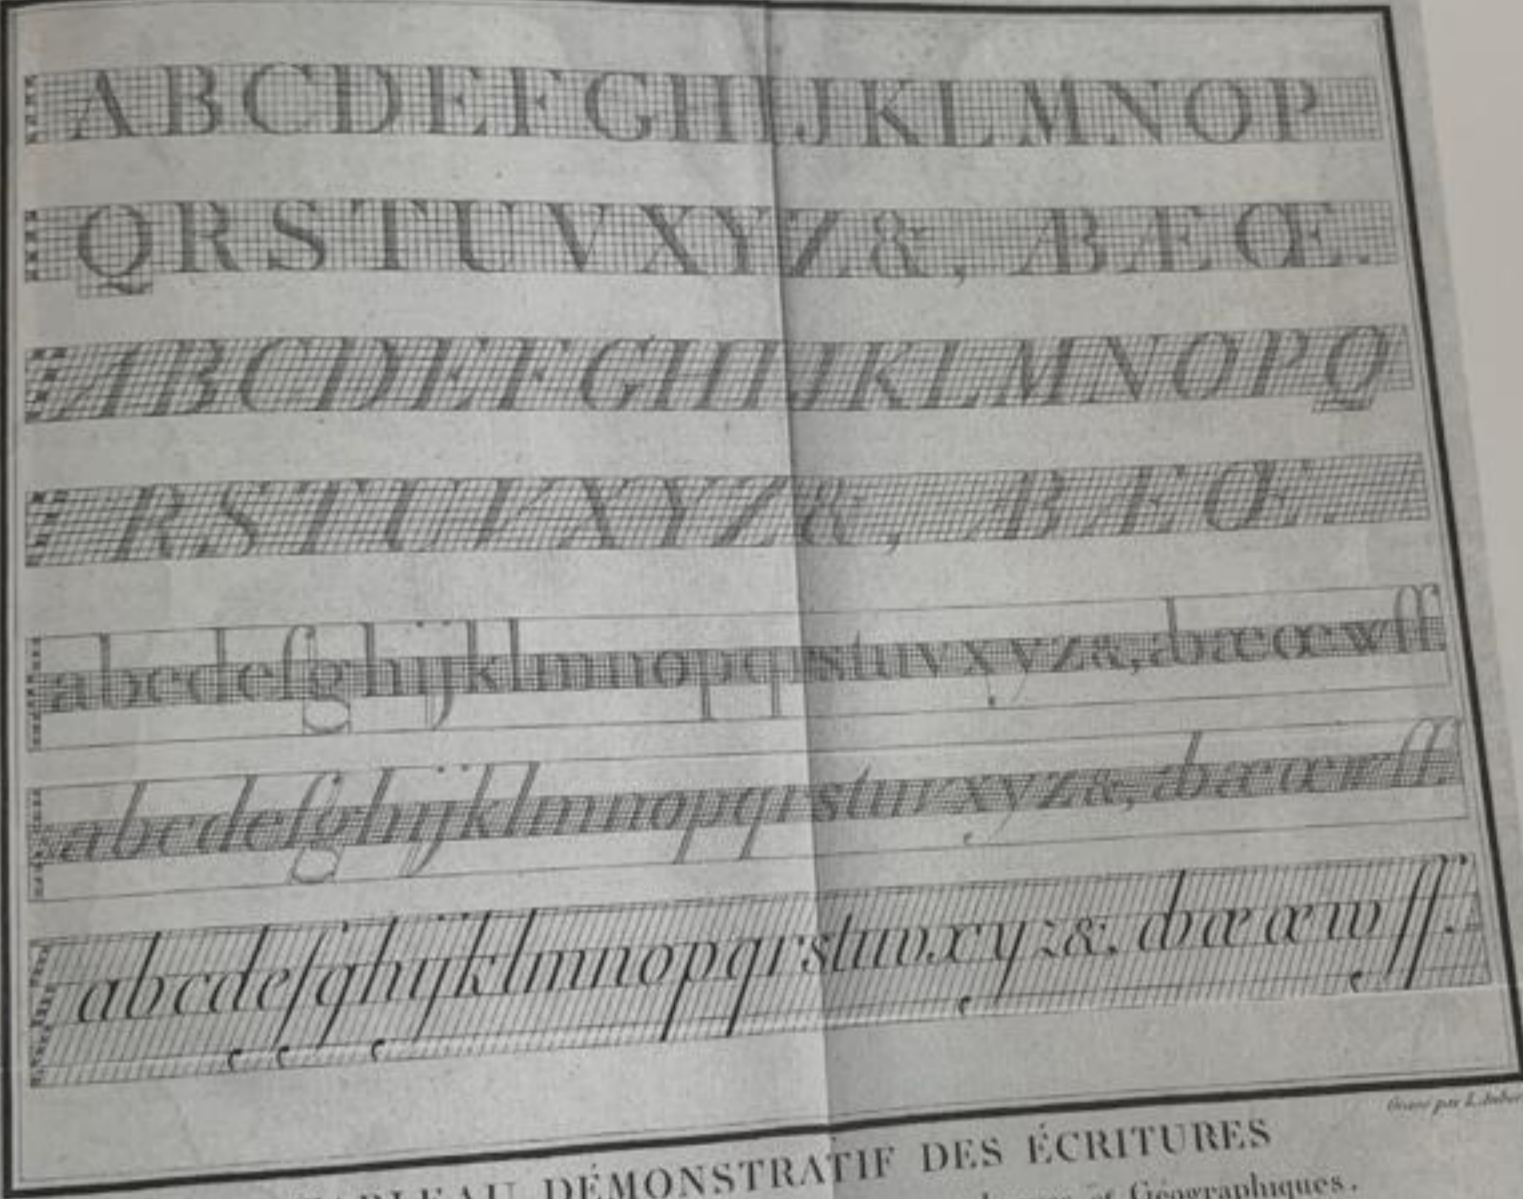 A B C D E F G H I J K L M N O P
Q R S T U V X Y Z &, Æ B Æ Œ.
A B C D E F G H I J K L M N O P Q
R S T U V X Y Z &, Æ B Æ Œ.
a b c d e f g h i j k l m n o p q r s t u v x y z &, æ œ w ff.
a b c d e f g h i j k l m n o p q r s t u v x y z &, æ œ w ff.
a b c d e f g h i j k l m n o p q r s t u v x y z &, æ œ w ff.
Gravé par L. Aubert
TABLEAU DÉMONSTRATIF DES ÉCRITURES
et Géographiques.